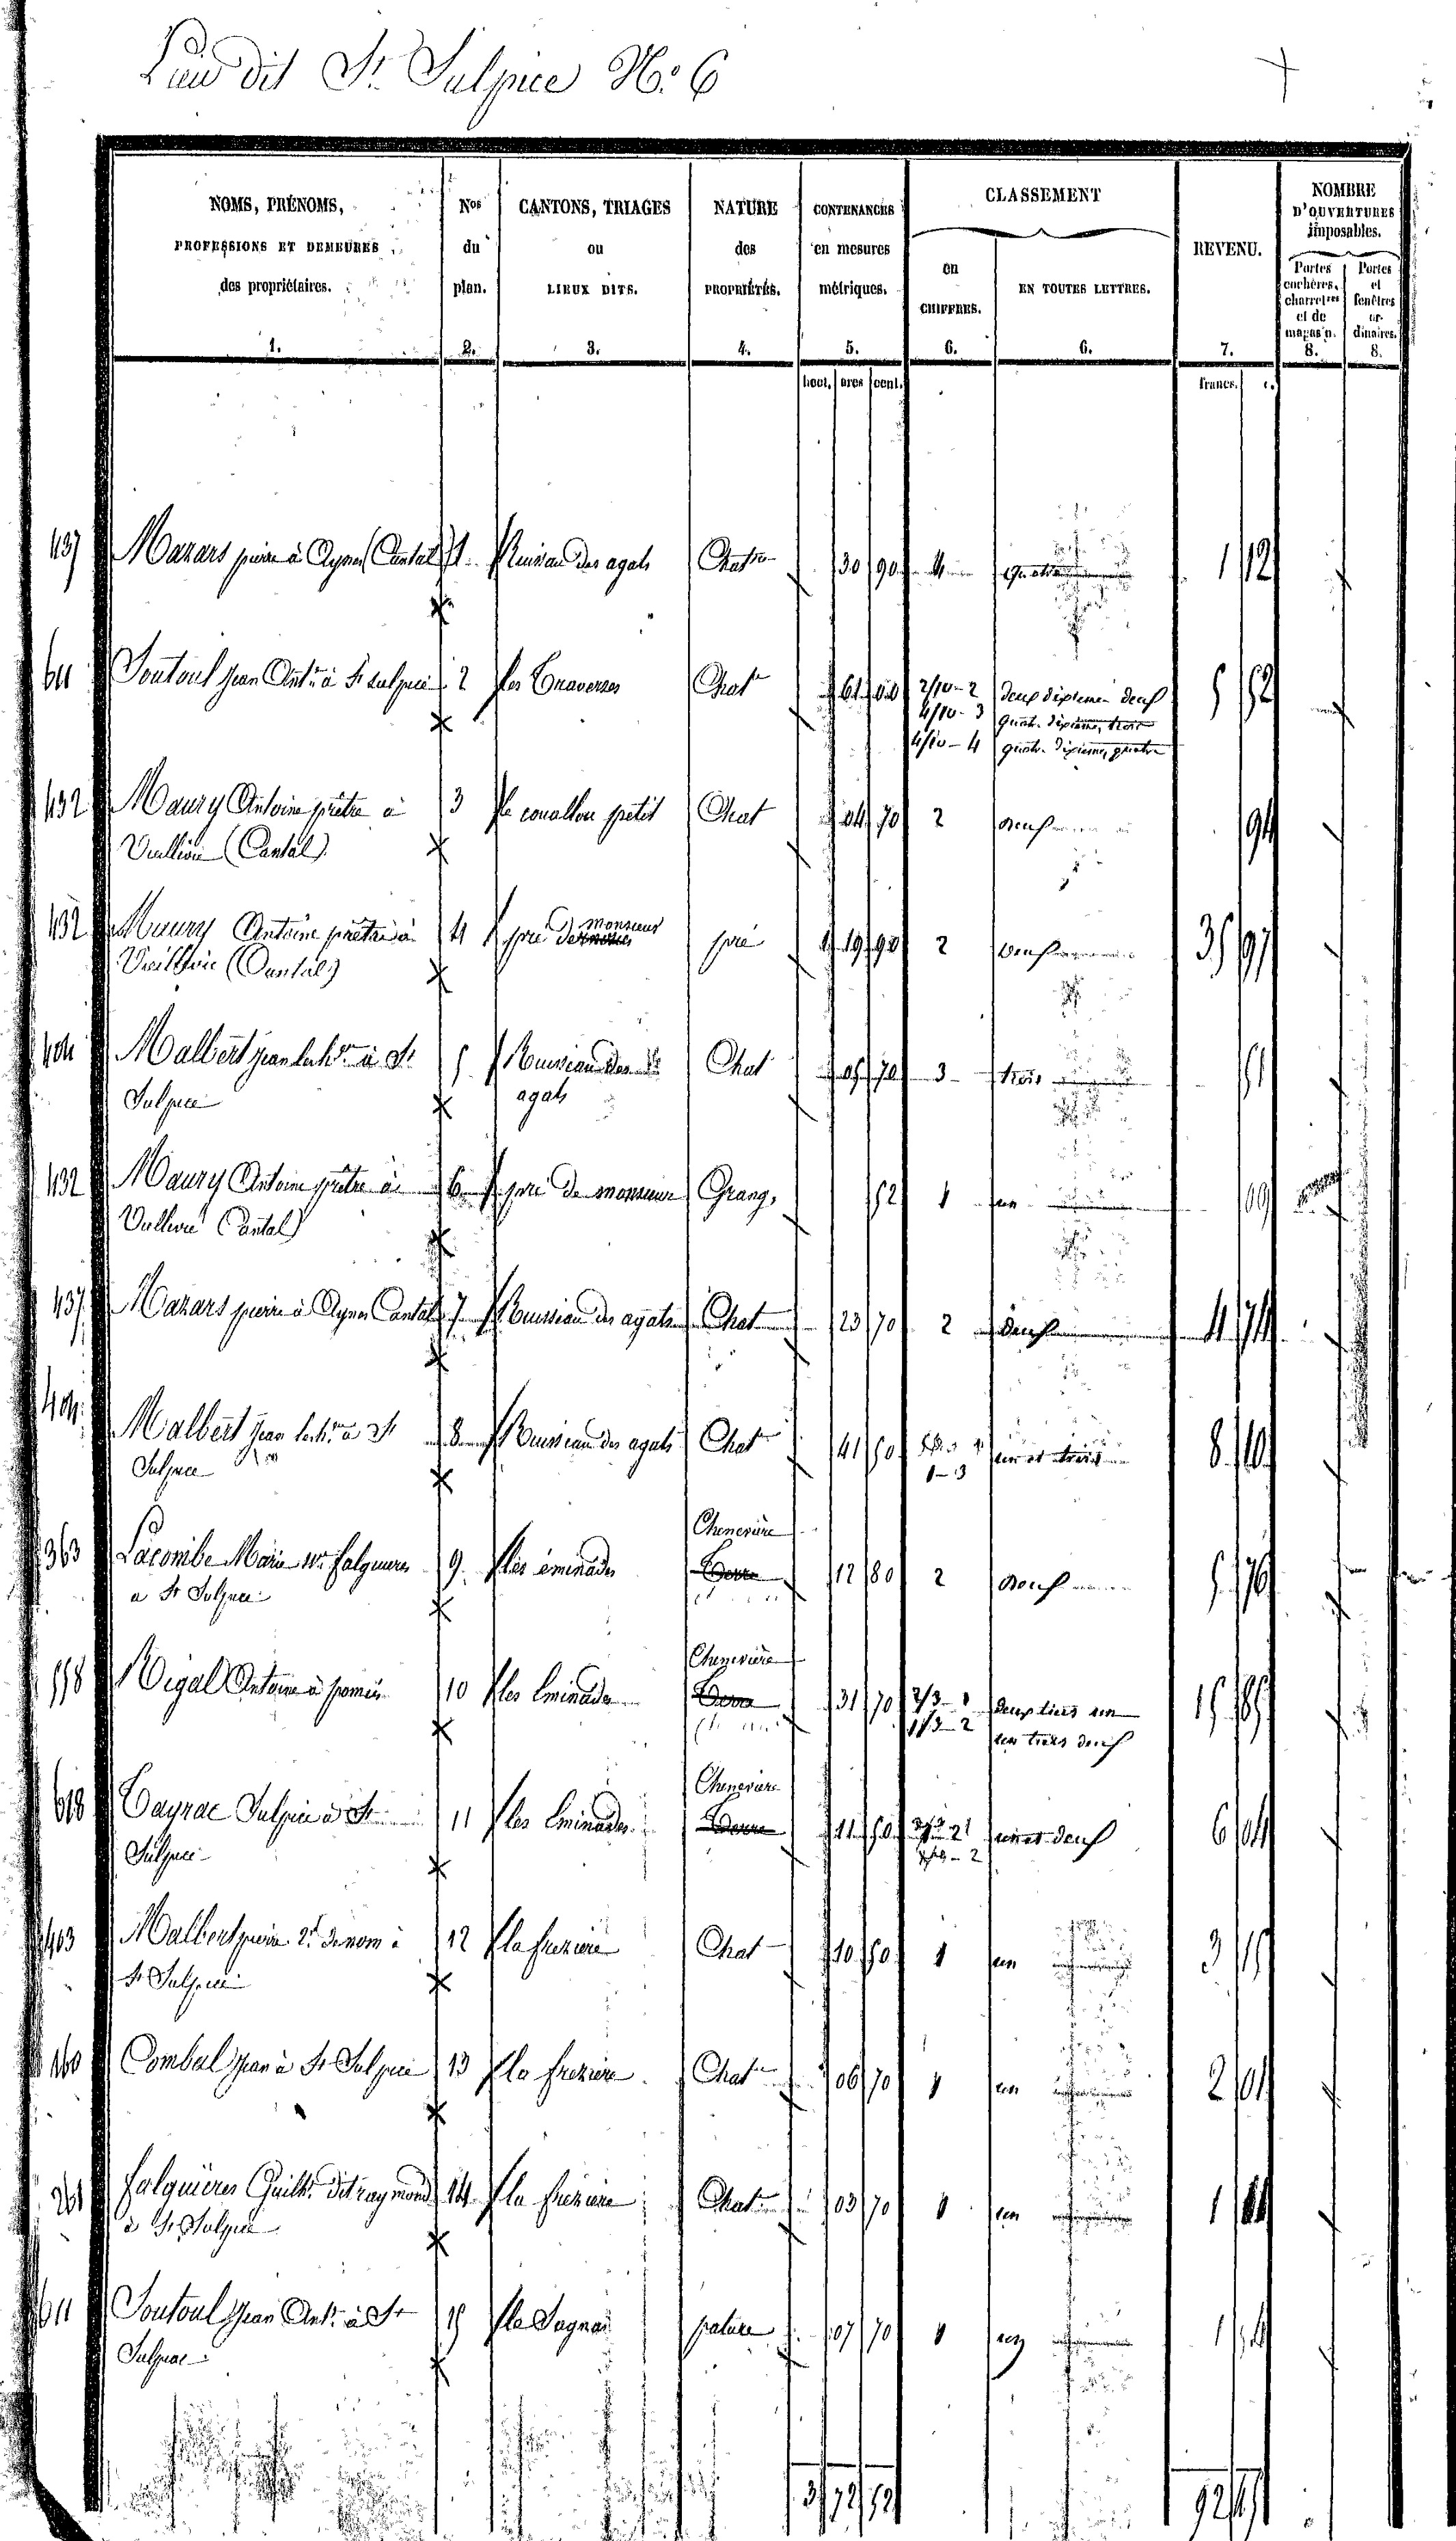 Lieu dit St. Sulpice No. 6
NOMS, PRÉNOMS, PROFESSIONS ET DEMEURES des propriétaires. 1.
Nos du plan. 2.
CANTONS, TRIAGES ou LIEUX DITS. 3.
NATURE des PROPRIÉTÉS. 4.
CONTENANCES en mesures métriques. 5.
CLASSEMENT
en CHIFFRES. 6.
EN TOUTES LETTRES. 6.
REVENU. 7.
NOMBRE D'OUVERTURES imposables.
Portes cochères, charretres et de magasin. 8.
Portes et fenêtres ordinaires. 8.
hect. ares cent. francs. c.
437 Mazars pierre à (Cantal) 1 Ruisseau des agats 30 90 4 quatre 1 12
611 Soutoul Jean Ant. à St Sulpice 2 les Traverses Chat 61 2/10-2 deux dixieme deux 5 52
4/10-3 quatre dixieme, trois
4/10-4 quatre dixieme, quatre
432 Maury Antoine prêtre à 3 petit Chat 04 70 2 deux 94
(Cantal)
432 Maury Antoine prêtre à 4 pré de monsieur pré 1 19 90 2 deux 35 97
(Cantal)
404 Malbert Jean à St 5 Ruisseau des Chat 05 70 3 trois 51
Sulpice agats
432 Maury Antoine prêtre à 6 pré de monsieur Grang. 52 1 un 09
(Cantal)
437 Mazars pierre à Cantal 7 Ruisseau des agats Chat 23 70 2 deux 4 74
404 Malbert Jean à St 8 Ruisseau des agats Chat 41 50 un et trois 8 10
Sulpice 1-3
Chenevière
363 Lacombe Marie Ve falguieres 9 les éminades Terre 12 80 2 deux 5 76
a St Sulpice
Chenevière
558 Rigal Antoine à 10 les Eminades Terre 31 70 2/3-1 deux tiers un 15 85
1/3-2 un tiers deux
Chenevière
618 Cayrac Sulpice à St 11 les Eminades Terre 11 50 un et deux 6 04
Sulpice
403 Malbert pierre 2d de nom à 12 la freziere Chat 10 50 1 un 3 15
St Sulpice
160 Combal Jean à St Sulpice 13 la freziere Chat 06 70 1 un 2 01
261 falguières Guilh. dit raymond 14 la freziere Chat 03 70 1 un 1
à St Sulpice
611 Soutoul Jean Ant. à St 15 pature 07 70 1 un 1
Sulpice
3 72 52 92